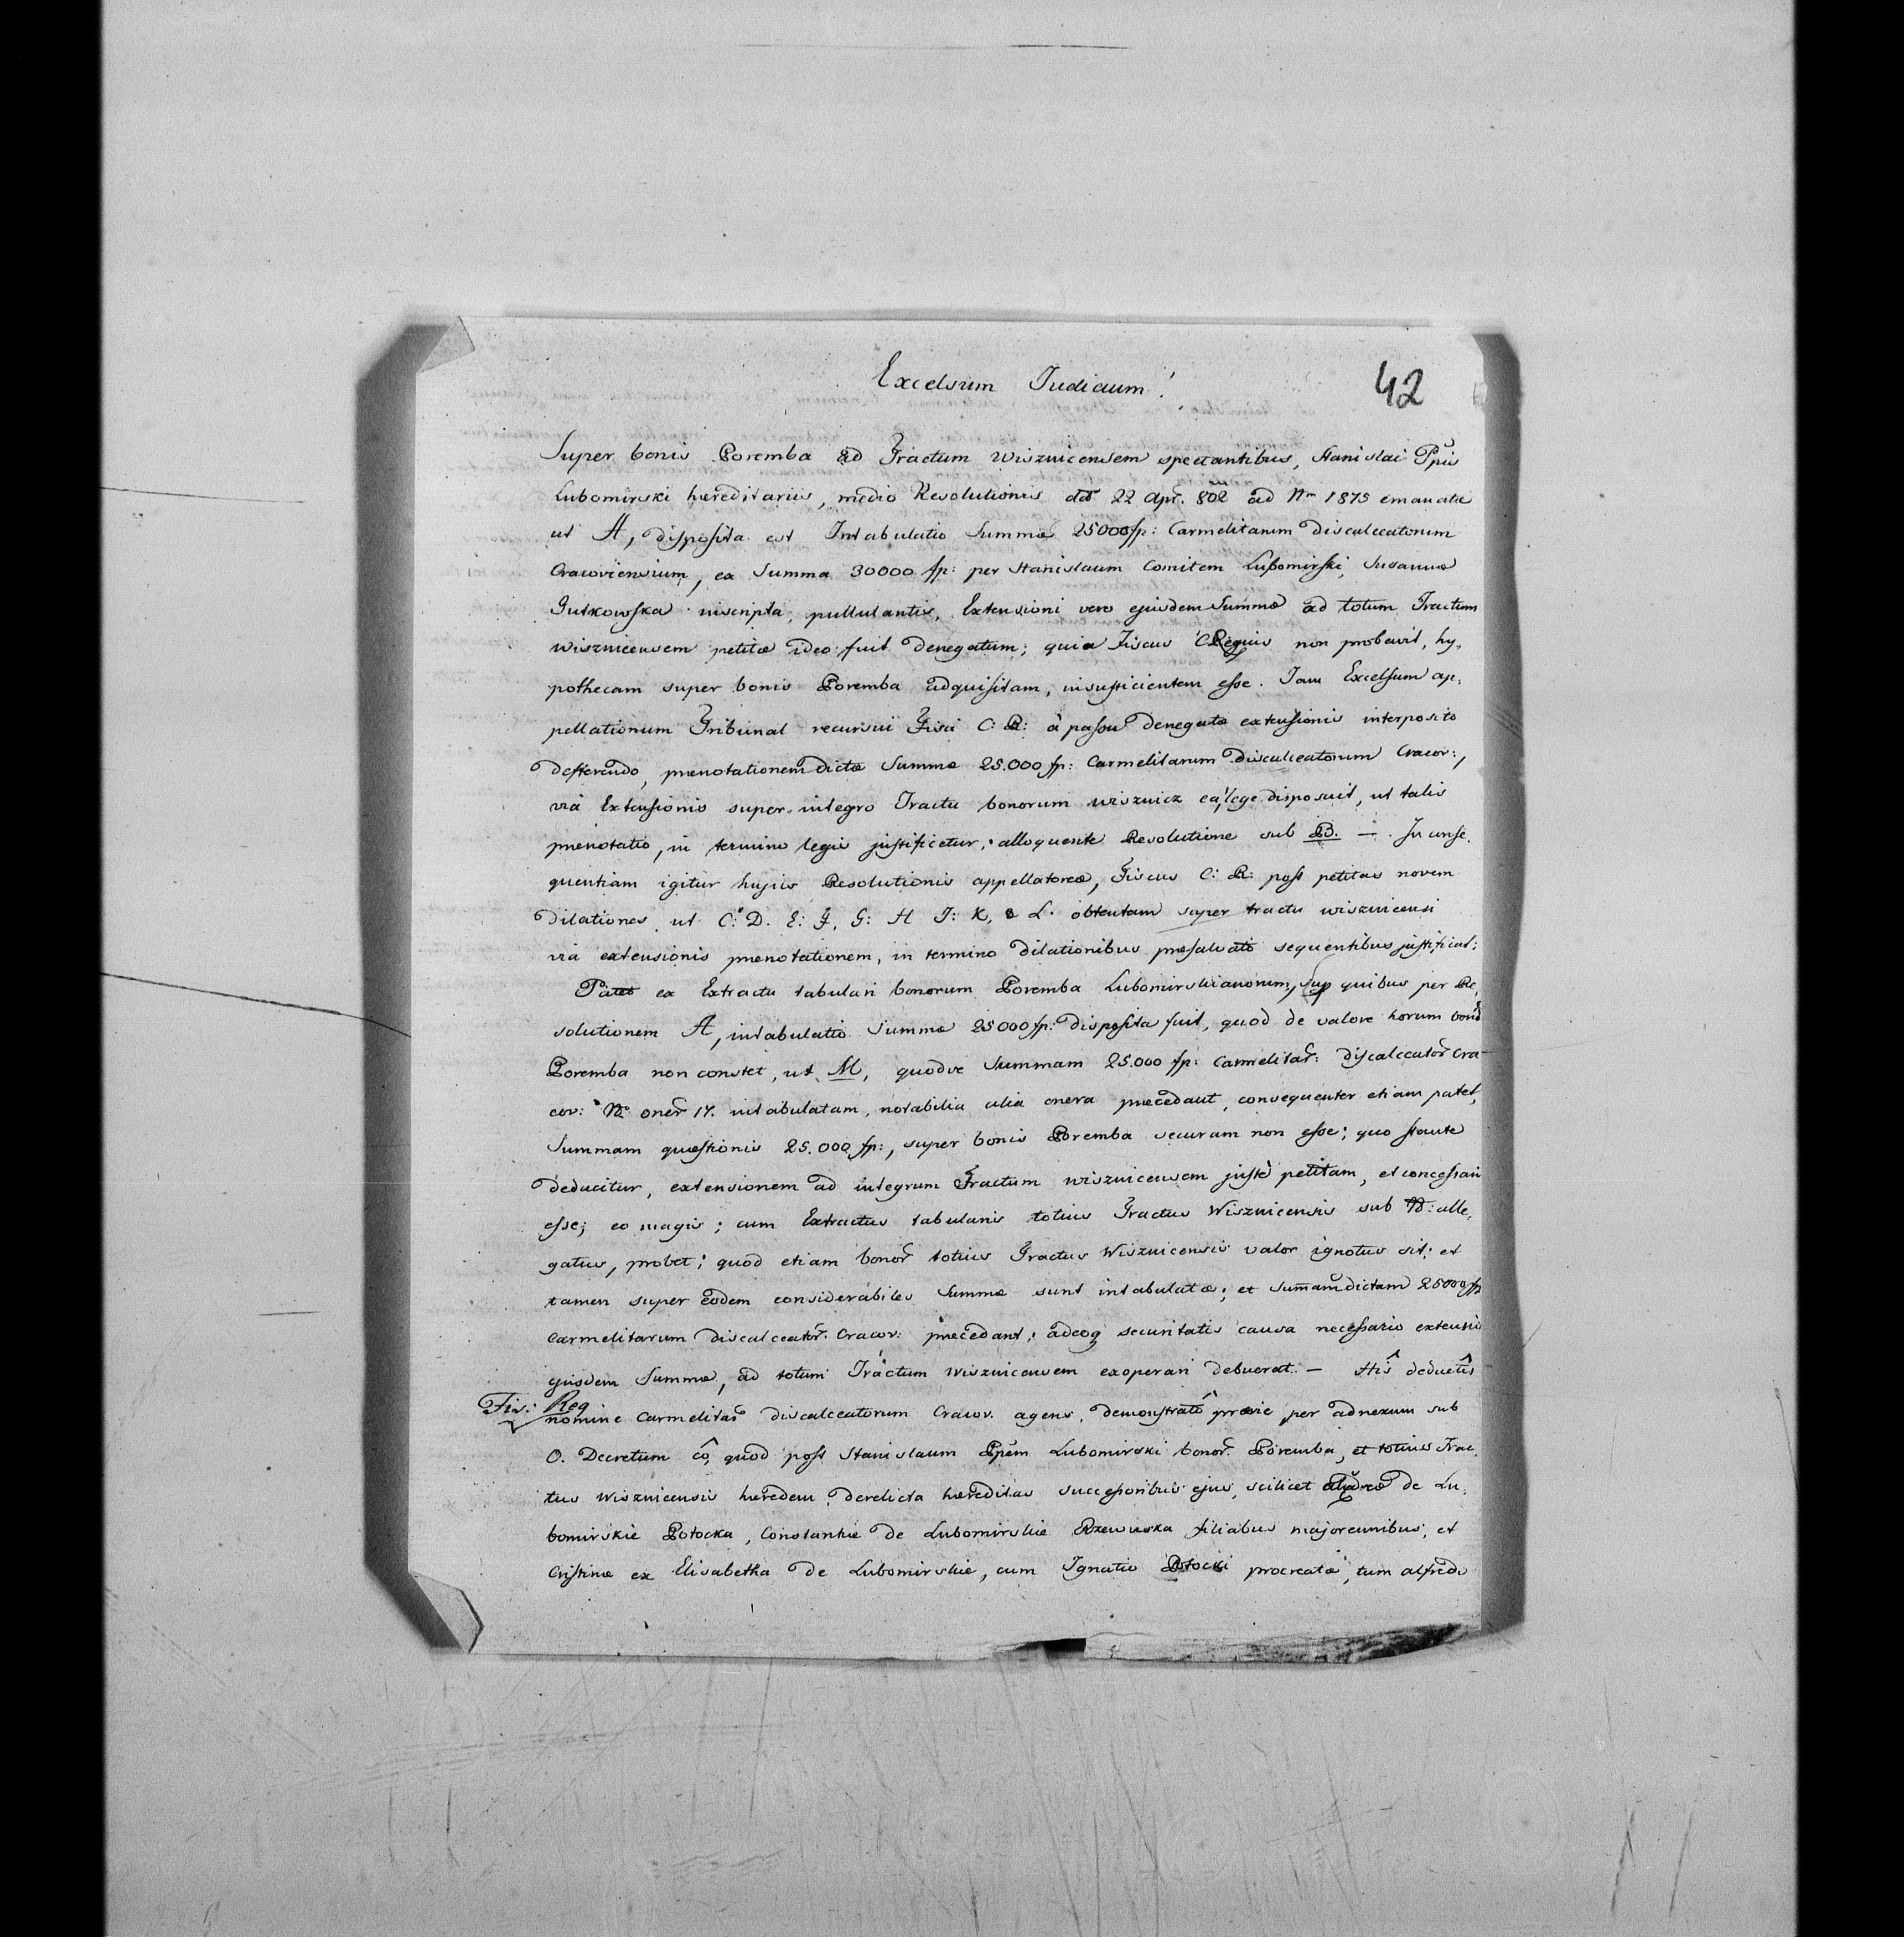 Excelsum Judicium!
42
Super bonis Poremba ad Tractum Wisznicensem spectantibus, Stanislai Ppis
Lubomirski hæreditariis, medio Resolutionis ddto 22 Apr. 802 ad Nm 1875 emanatæ
ut A, disposita est Intabulatio Summæ 25000 fp: Carmelitarum discalceatorum
Cracoviensium, ex Summa 30000 fp: per Stanislaum Comitem Lubomirski, Susannæ
Gutkowska inscripta, pullulantis, Extensioni vero ejusdem Summæ ad totum Tractum
Wisznicensem petitæ ideo fuit denegatum; quia Fiscus C Regius non probavit, hy,
pothecam super bonis Poremba adquisitam, insufficientem esse. Jam Excelsum ap,
pellationum Tribunal recursui Fisci C: R: à passu denegatæ extensionis interposito
defferendo, prænotationem dictæ Summæ 25.000 fp: Carmelitarum discalceatorum Cracov:,
viâ Extensionis super integro Tractu bonorum Wisznicz eâ lege disposuit, ut talis
prænotatio, in termino legis justificetur, alloquente Resolutione sub B. — In conse,
quentiam igitur hujus Resolutionis appellatoreæ, Fiscus C: R: post petitas novem
dilationes ut C: D. E: F, G: H J: K, & L. obtentam super tractu wisznicensi
viâ extensionis prænotationem, in termino dilationibus præsalvato sequentibus justificat:
Patet ex Extractu tabulari bonorum Poremba Lubomirskianorum, sup quibus per Re,
solutionem A, intabulatio Summæ 25000 fp: disposita fuit, quod de valore horum bonō
Poremba non constet, ut M, quodve Summam 25.000 fp: Carmelitar: discalceator Cra
cov: No oner 17. intabulatam, notabilia alia onera præcedant, consequenter etiam patet,
Summam quæstionis 25.000 fp:, super bonis Poremba securam non esse; quo stante
deducitur, extensionem ad integrum Tractum wisznicensem justè petitam, et concessam
esse; eo magis; cum Extractus tabularis totius Tractus Wisznicensis sub N: alle,
gatus, probet; quod etiam bonor totius Tractus Wisznicensis valor ignotus sit; et
tamen super eodem considerabiles Summæ sunt intabulatæ; et Summam dictam 25000 fp
Carmelitarum discalceator. Cracov: præcedant; adeoq securitatis causa necessario extensio
ejusdem Summæ, ad totum Tractum Wisznicensem exoperari debuerat. — His deductis
Fis: Reg
nomine Carmelitar discalceatorum Cracov. agens, demonstrato prævie per adnexum sub
O. Decretum eo, quod post Stanislaum Ppem Lubomirski bonor. Poremba, et totius Trac,
tus Wisznicensis hæredem, derelicta hæreditas successoribus ejus, scilicet de Lu,
bomirskie Potocka, Constantiæ de Lubomirskie Rzewuska filiabus majorennibus, et
Cristinæ ex Elisabetha de Lubomirskie, cum Ignatio Potocki procreatæ, tum alfredo